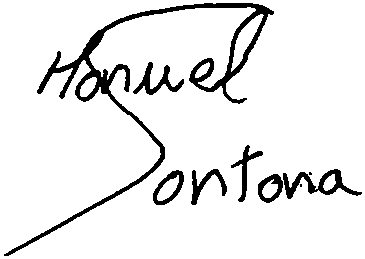 Manuel
Santana